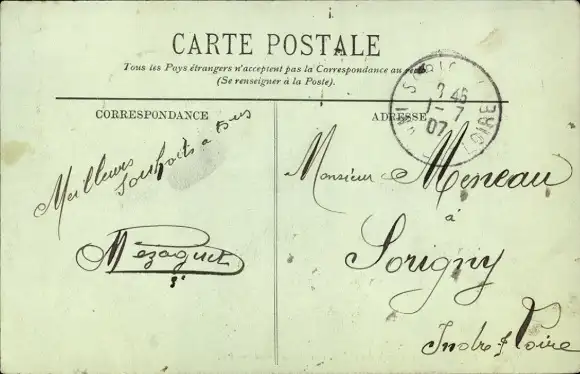 CARTE POSTALE
Tous les Pays étrangers n'acceptent pas la Correspondance au recto
(Se renseigner à la Poste).
CORRESPONDANCE
ADRESSE
SORIG
3 45
1-7
07
LOIRE
Meilleurs
souhaits a tous
Mezaguet
Monsieur Meneau
à
Sorigny
Indre & Loire